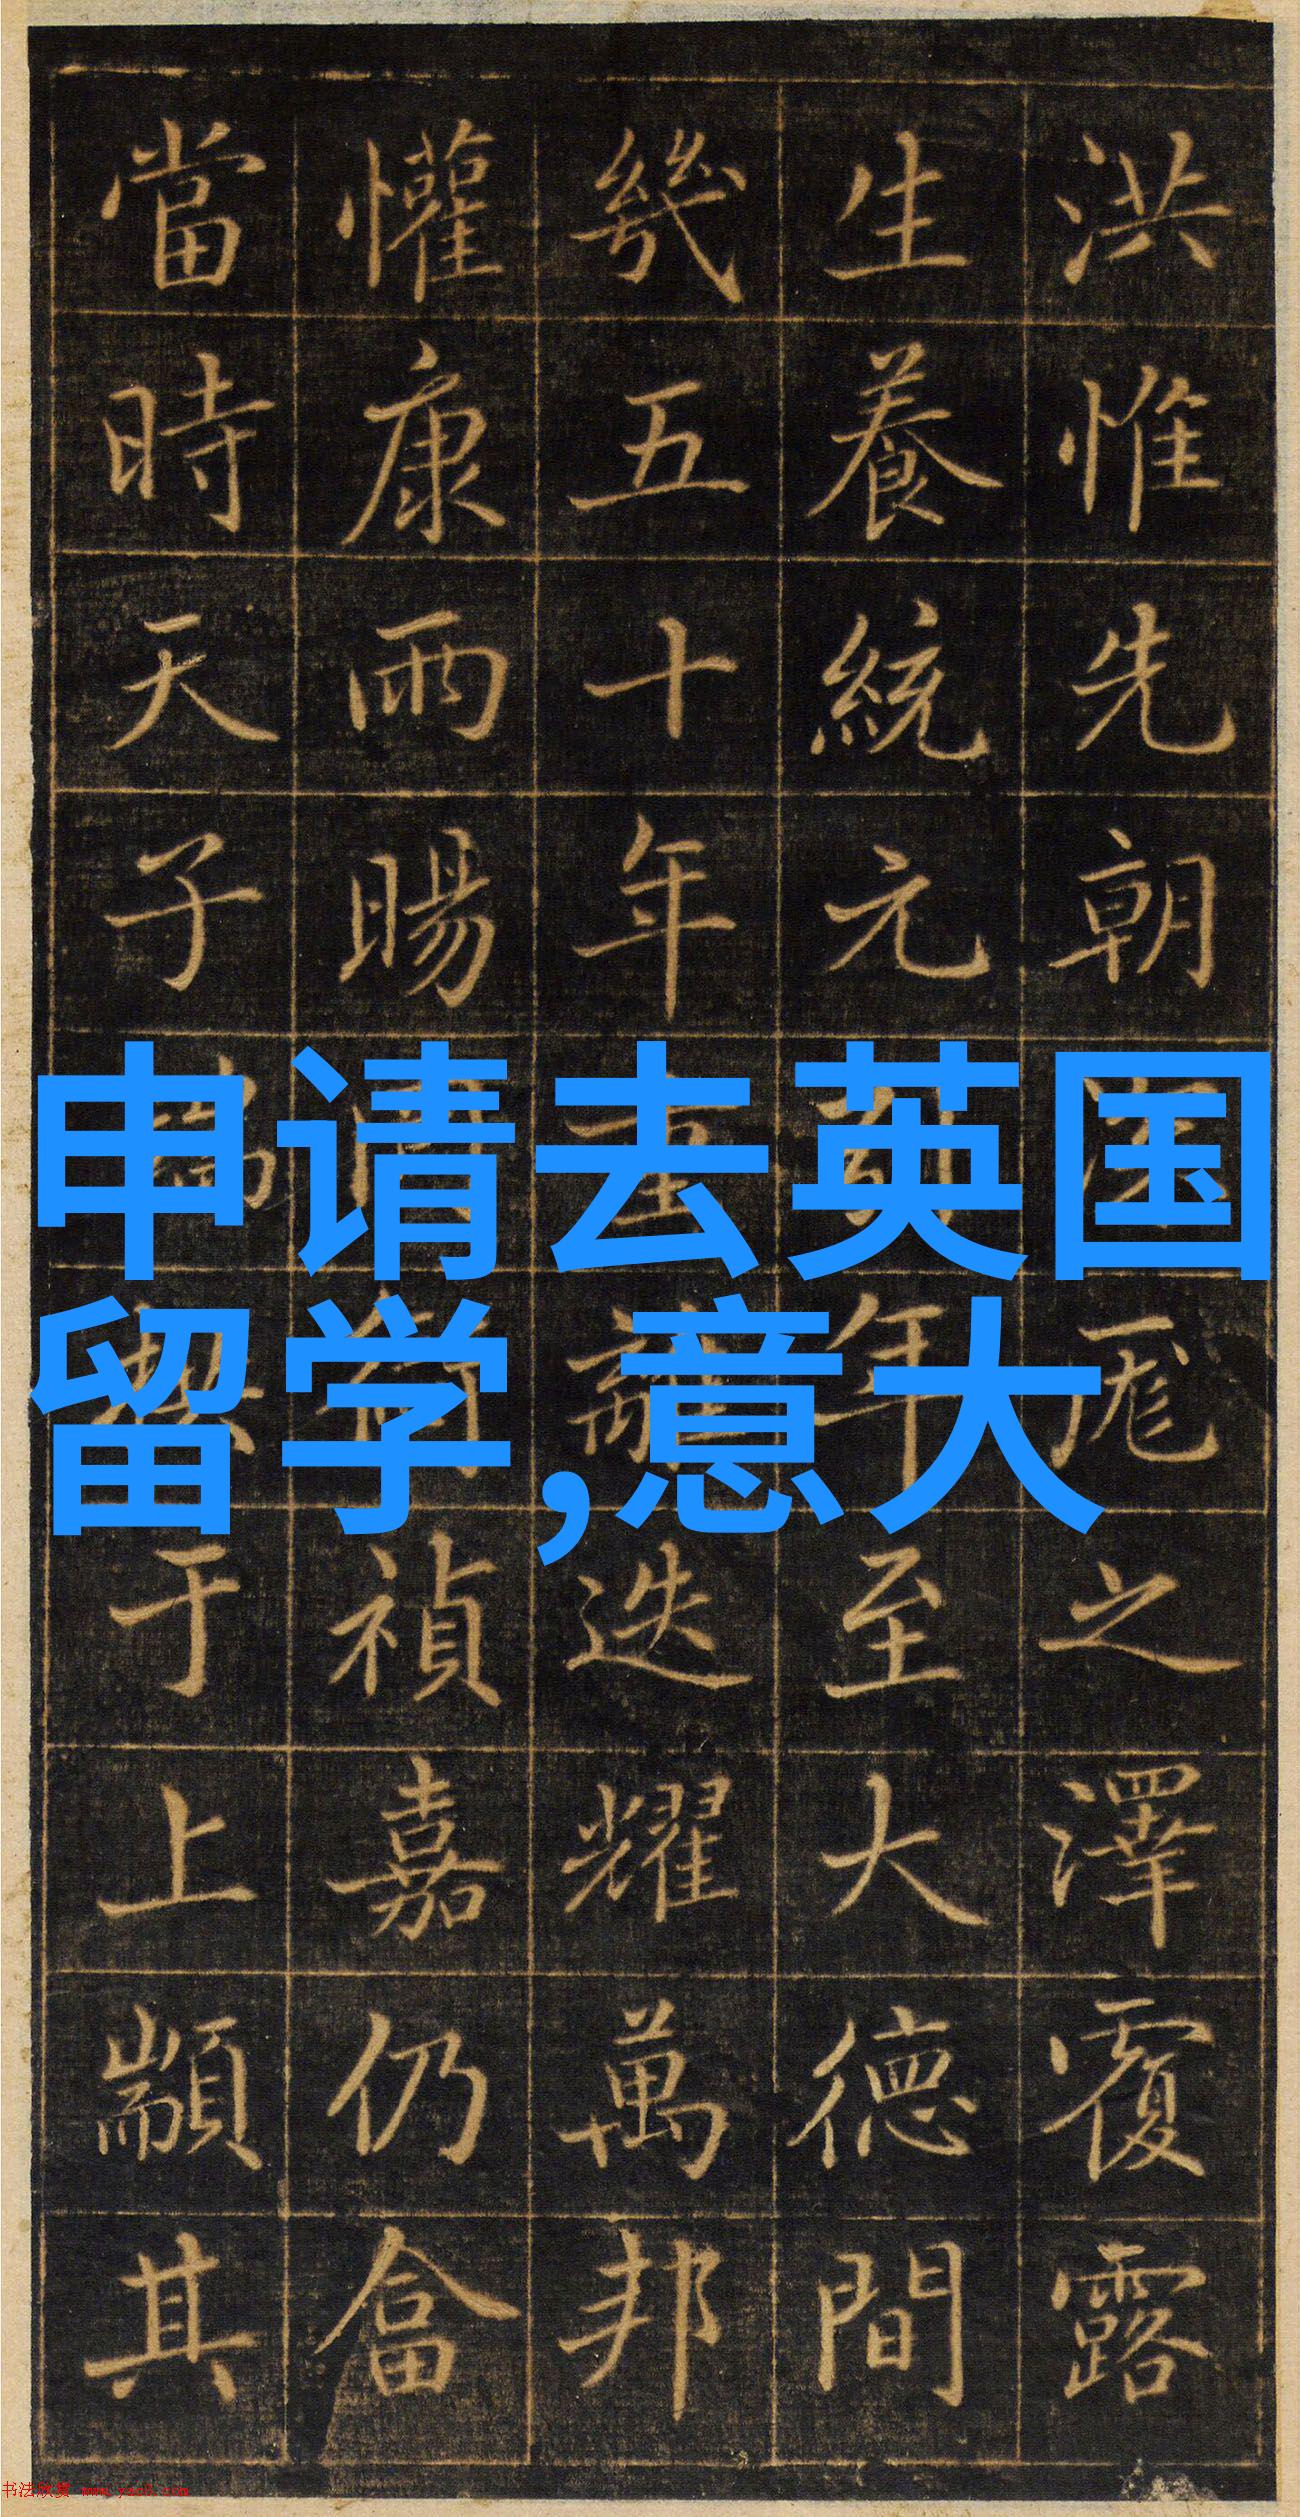 洪惟先朝厖之澤覆露
生養統元年至大德間
幾五十年迭耀萬邦
懽康雨暘禎嘉仍畣
當時天子于上顓其
申请去英国
留学,意大
书法欣赏 www.yac8.com